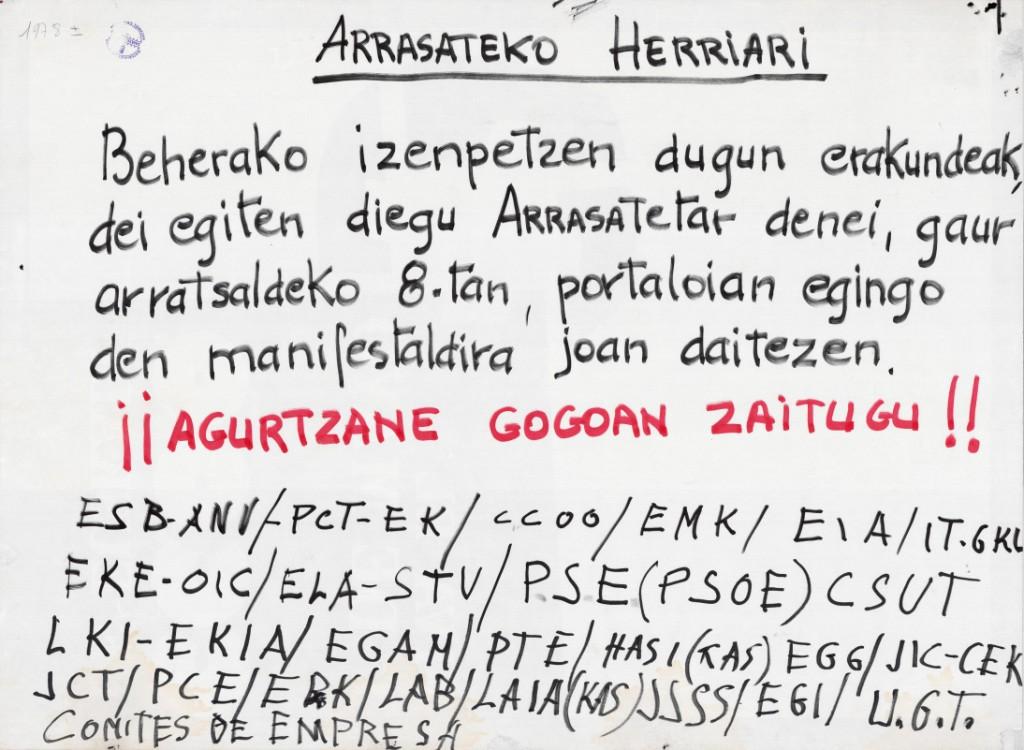 1978 ±
ARRASATEKO HERRIARI
Beherako izenpetzen dugun erakundeak,
dei egiten diegu ARRASATETAR denei, gaur
arratsaldeko 8.tan, portaloian egingo
den manifestaldira joan daitezen.
¡¡AGURTZANE GOGOAN ZAITUGU!!
ESB-ANV/-PCT-EK/CCOO/EMK/EIA/IT.GKL
EKE-OIC/ELA-STV/PSE(PSOE)CSUT
LKI-EKIA/EGAM/PTE/HASI(KAS)EGG/JIC-CEK
JCT/PCE/ERK/LAB/LAIA(KAS)JJSS/EGI/U.G.T.
COMITES DE EMPRESA